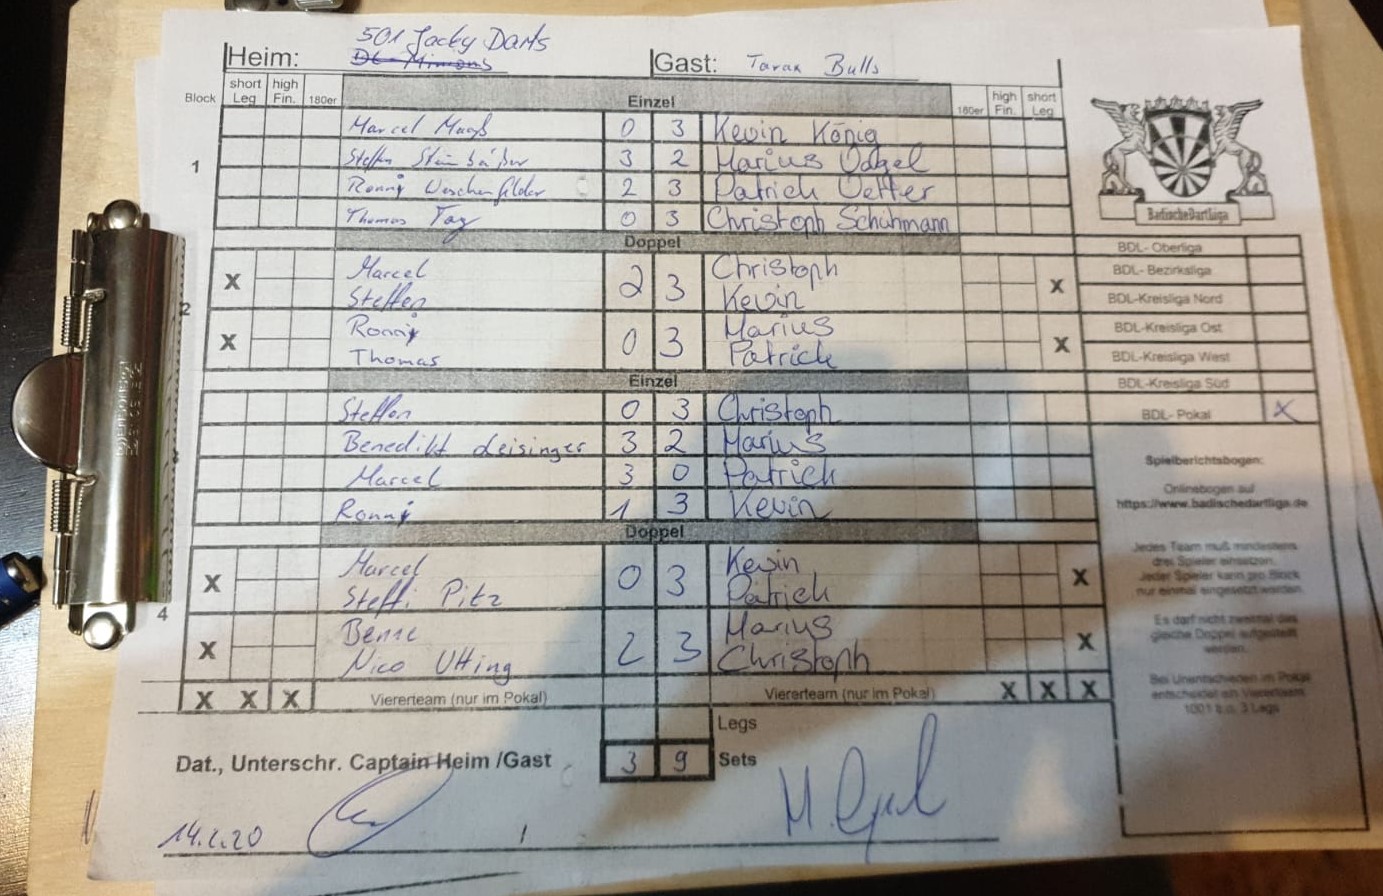 501 Jacky Darts
Heim: DC Minions Gast: Taran Bulls
Block short Leg high Fin. 180er Einzel 180er high Fin. short Leg
Marcel Maaß 0 3 Kevin König
1 Steffen 3 2 Marius Vogel
Ronny Weschenfelder 2 3 Patrick Vetter
Thomas Fay 0 3 Christoph Schühmann
BadischeDartliga
Doppel
BDL- Oberliga
Marcel Christoph
X 2 3 X
Steffen Kevin
BDL- Bezirksliga
BDL-Kreisliga Nord
2
Ronny Marius
X 0 3 X
Thomas Patrick
BDL-Kreisliga Ost
BDL-Kreisliga West
Einzel
BDL-Kreisliga Süd
Steffen 0 3 Christoph
BDL- Pokal X
Benedikt Leisinger 3 2 Marius
Marcel 3 0 Patrich
Ronny 1 3 Kevin
Spielberichtsbogen:
Onlinebogen auf
https://www.badischedartliga.de
Doppel
Marcel Kevin
X 0 3 X
Steffi Pitz Patrich
4
Bense Marius
X 2 3 X
Nico Utting Christoph
Jedes Team muß mindestens
drei Spieler einsetzen.
Jeder Spieler kann pro Block
nur einmal eingesetzt werden.
Es darf nicht zweimal das
gleiche Doppel aufgestellt
werden.
Bei Unentschieden im Pokal
entscheidet ein Viererteam
1001 b.o. 3 Legs
X X X Viererteam (nur im Pokal) Viererteam (nur im Pokal) X X X
Legs
Dat., Unterschr. Captain Heim /Gast 3 9 Sets
14.2.20 /